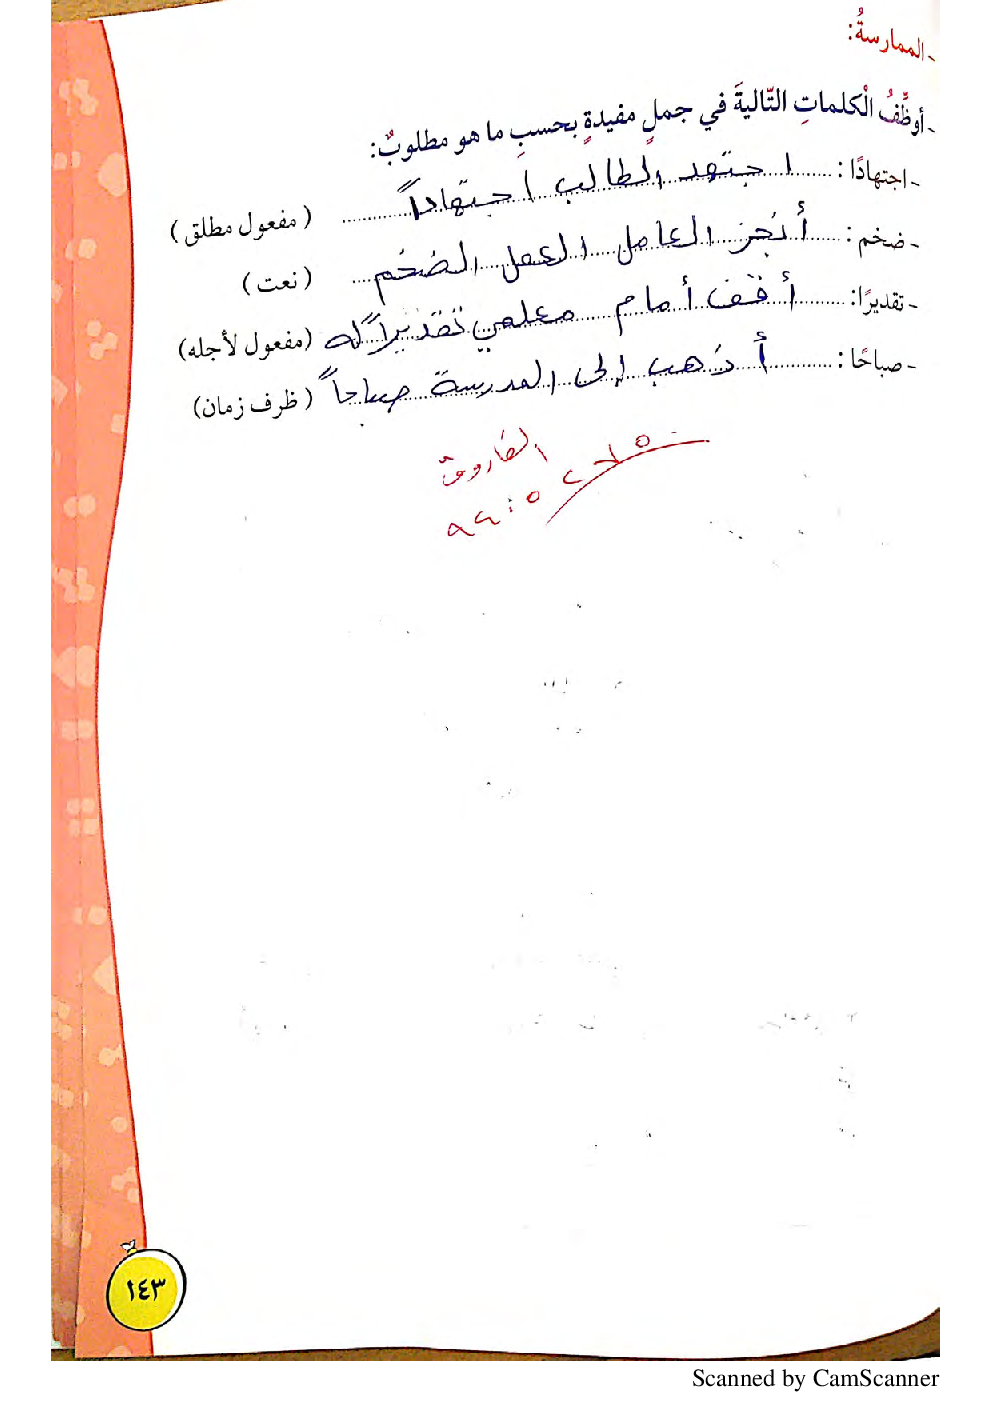 - الممارسةُ:
- أوظِّفُ الْكلماتِ التّاليةَ في جملٍ مفيدةٍ بحسبِ ما هو مطلوبٌ:
- اجتهادًا: اجتهد الطالب اجتهاداً (مفعول مطلق)
- ضخم: أنجز العامل العمل الضخم (نعت)
- تقديرًا: أقف أمام معلمي تقديراً له (مفعول لأجله)
- صباحًا: أذهب إلى المدرسة صباحاً (ظرف زمان)
الفاروق
١٤٣
Scanned by CamScanner